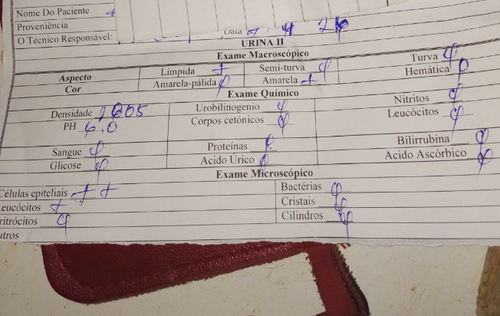 Nome Do Paciente +
Proveniência
O Técnico Responsável: Data
URINA II
Exame Macroscópico
Aspecto Límpida + Semi-turva φ Turva φ
Cor Amarela-pálida φ Amarela + Hemática φ
Exame Químico
Densidade 1,005 Urobilinogenio φ Nitritos φ
PH 6.0 Corpos cetónicos φ Leucócitos φ
Sangue φ Proteínas φ Bilirrubina φ
Glicose φ Acido Urico φ Acido Ascórbico φ
Exame Microscópico
Células epiteliais + + Bactérias φ
Leucócitos + Cristais φ
ritrócitos φ Cilindros φ
utros